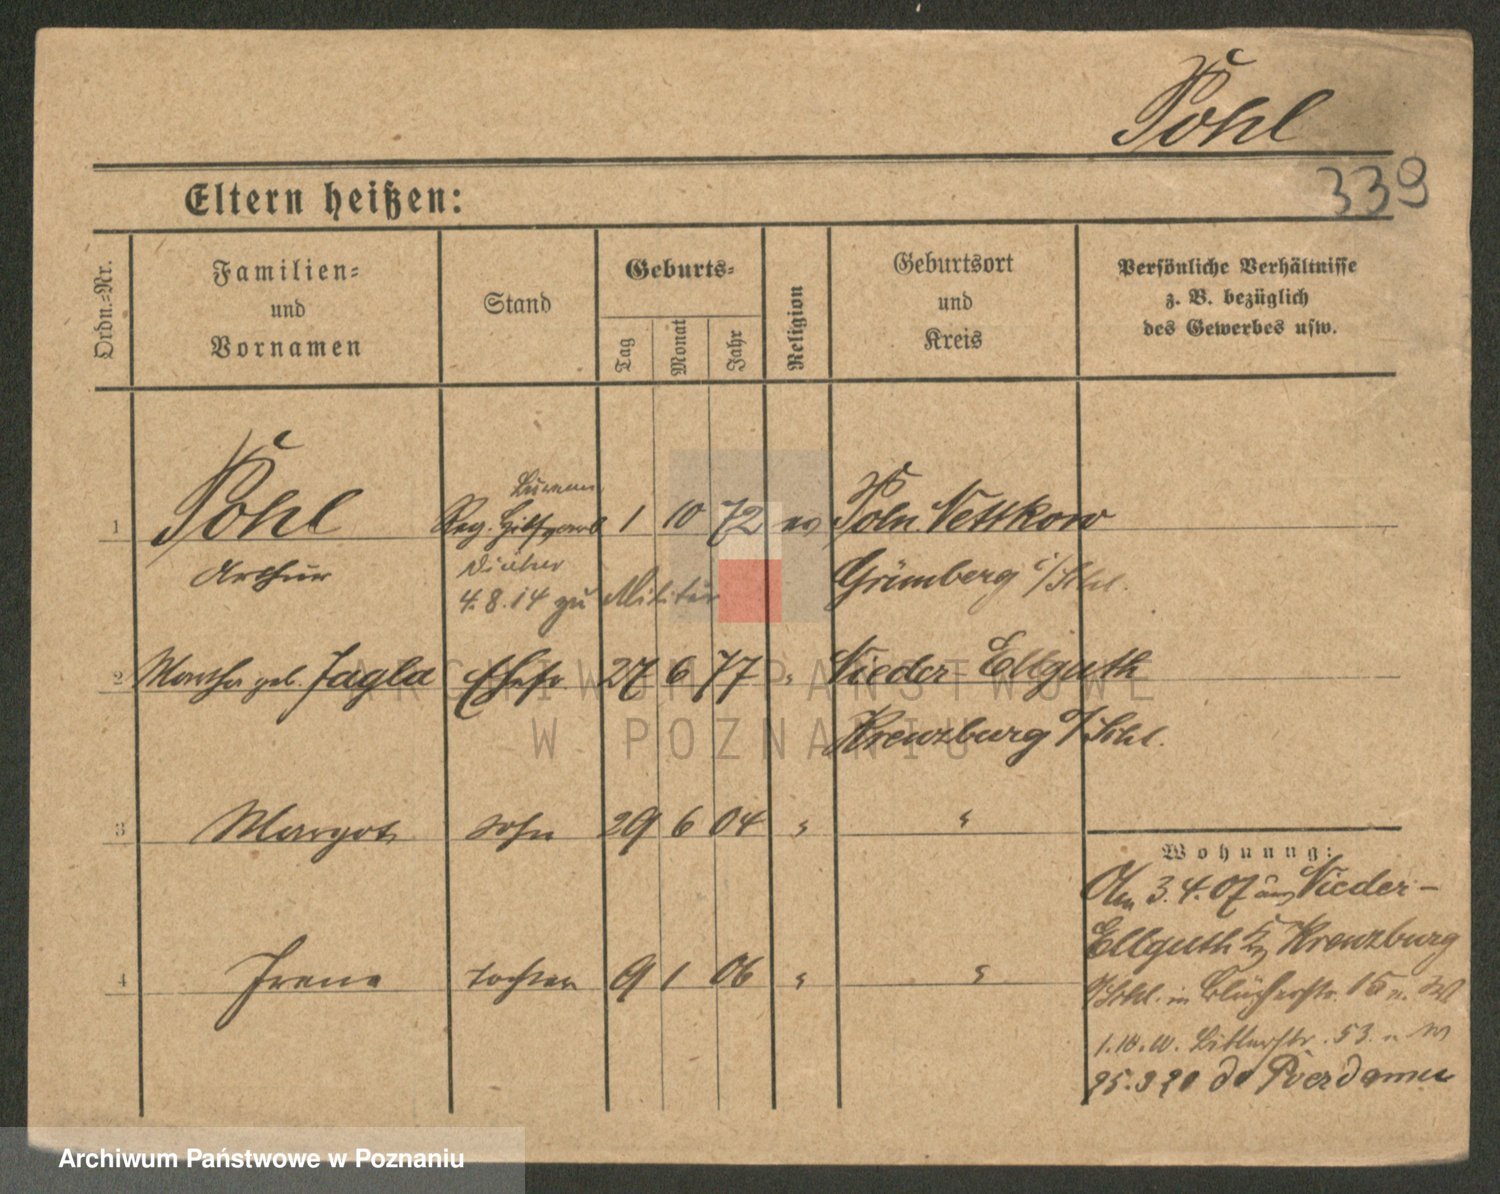 Pohl
339
Eltern heißen:
Ordn.-Nr.
Familien-
und
Vornamen
Stand
Geburts-
Tag
Monat
Jahr
Religion
Geburtsort
und
Kreis
Persönliche Verhältnisse
z. B. bezüglich
des Gewerbes usw.
1 Pohl
Arthur
Bureau
Reg.
Diätar
4.8.14 zu Militär
1 10 72 ev Poln. Nettkow
Grünberg i/Schl.
2 Martha geb. Jagla Ehefr 27 6 77 " Nieder Ellguth
Kreuzburg o/Schl.
3 Margot Sohn 29 6 04 " "
4 Irene Tochter 9 1 06 " "
Wohnung:
Am 3.4.07 aus Nieder-
Ellguth Kr Kreuzburg
O/Schl. in Blücherstr. 15
1.10. Bitterstr. 53.
25.3 20 do
ARCHIWUM PAŃSTWOWE
W POZNANIU
Archiwum Państwowe w Poznaniu